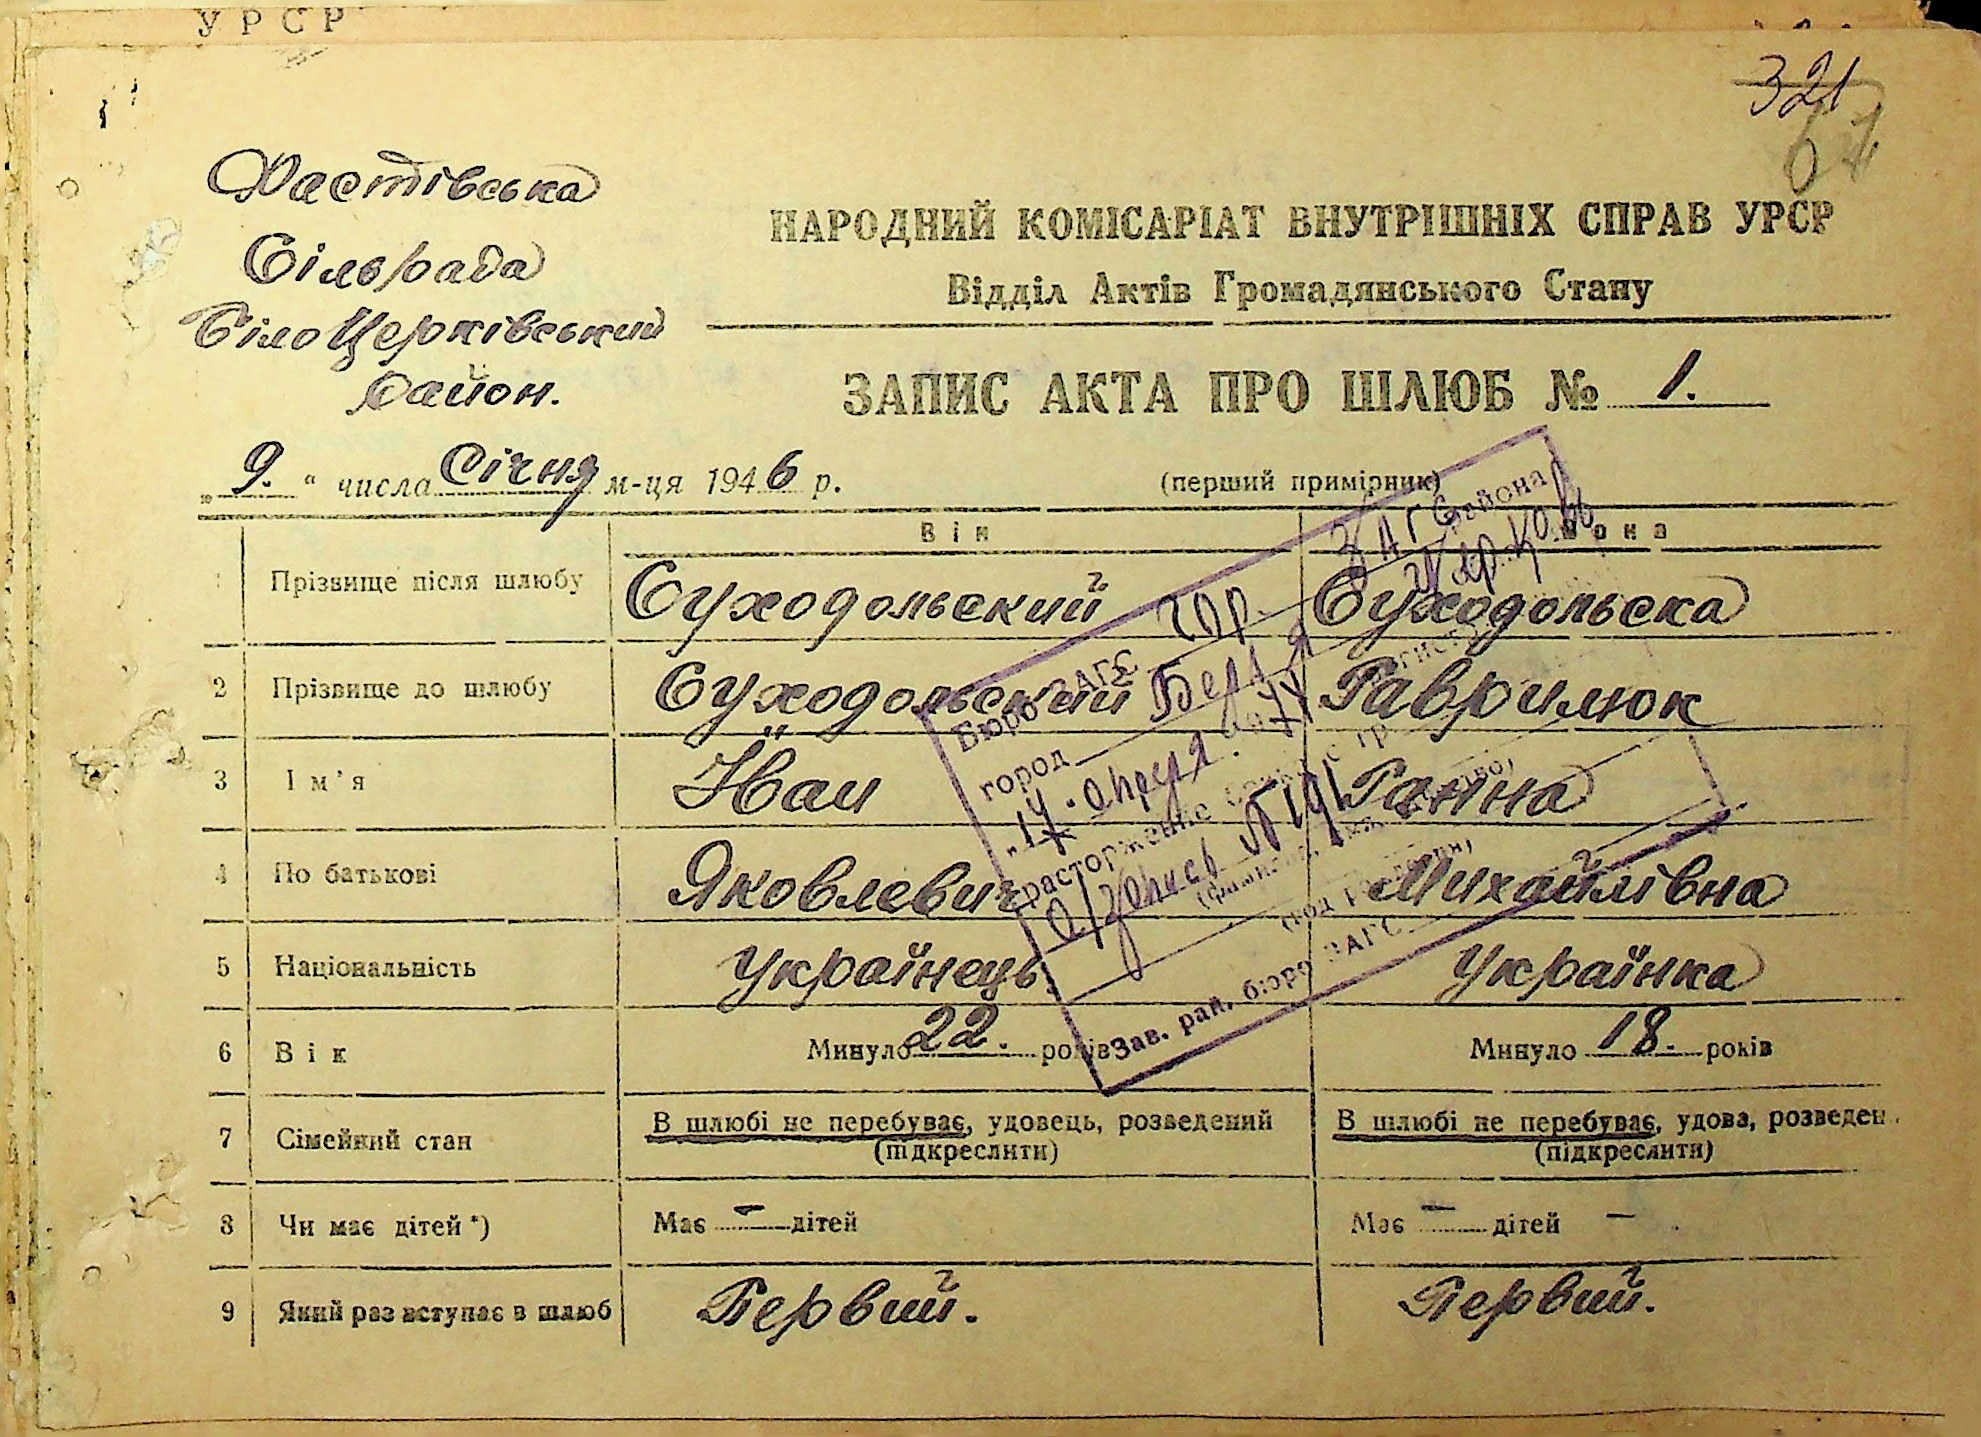 УРСР
321
67
Фастівська
Сільрада
БілоЦерківський
район.
НАРОДНИЙ КОМІСАРІАТ ВНУТРІШНІХ СПРАВ УРСР
Відділ Актів Громадянського Стану
ЗАПИС АКТА ПРО ШЛЮБ № 1.
„ 9. “ числа Січня м-ця 1946 р.
(перший примірник)
Він Вона
1 Прізвище після шлюбу Суходольський Суходольска
2 Прізвище до шлюбу Суходольський Гаврилюк
3 Ім'я Йван Ганна
4 По батькові Яковлевич Михайлівна
5 Національність Українець Українка
6 Вік Минуло 22. років Минуло 18. років
7 Сімейний стан В шлюбі не перебуває, удовець, розведений В шлюбі не перебуває, удова, розведен
(підкреслити) (підкреслити)
8 Чи має дітей *) Має – дітей Має – дітей –
9 Який раз вступає в шлюб Первий. Первий.
Бюро ЗАГС гор ЗАГС района
город
расторжение
запись №
Зав. рай. бюро ЗАГС